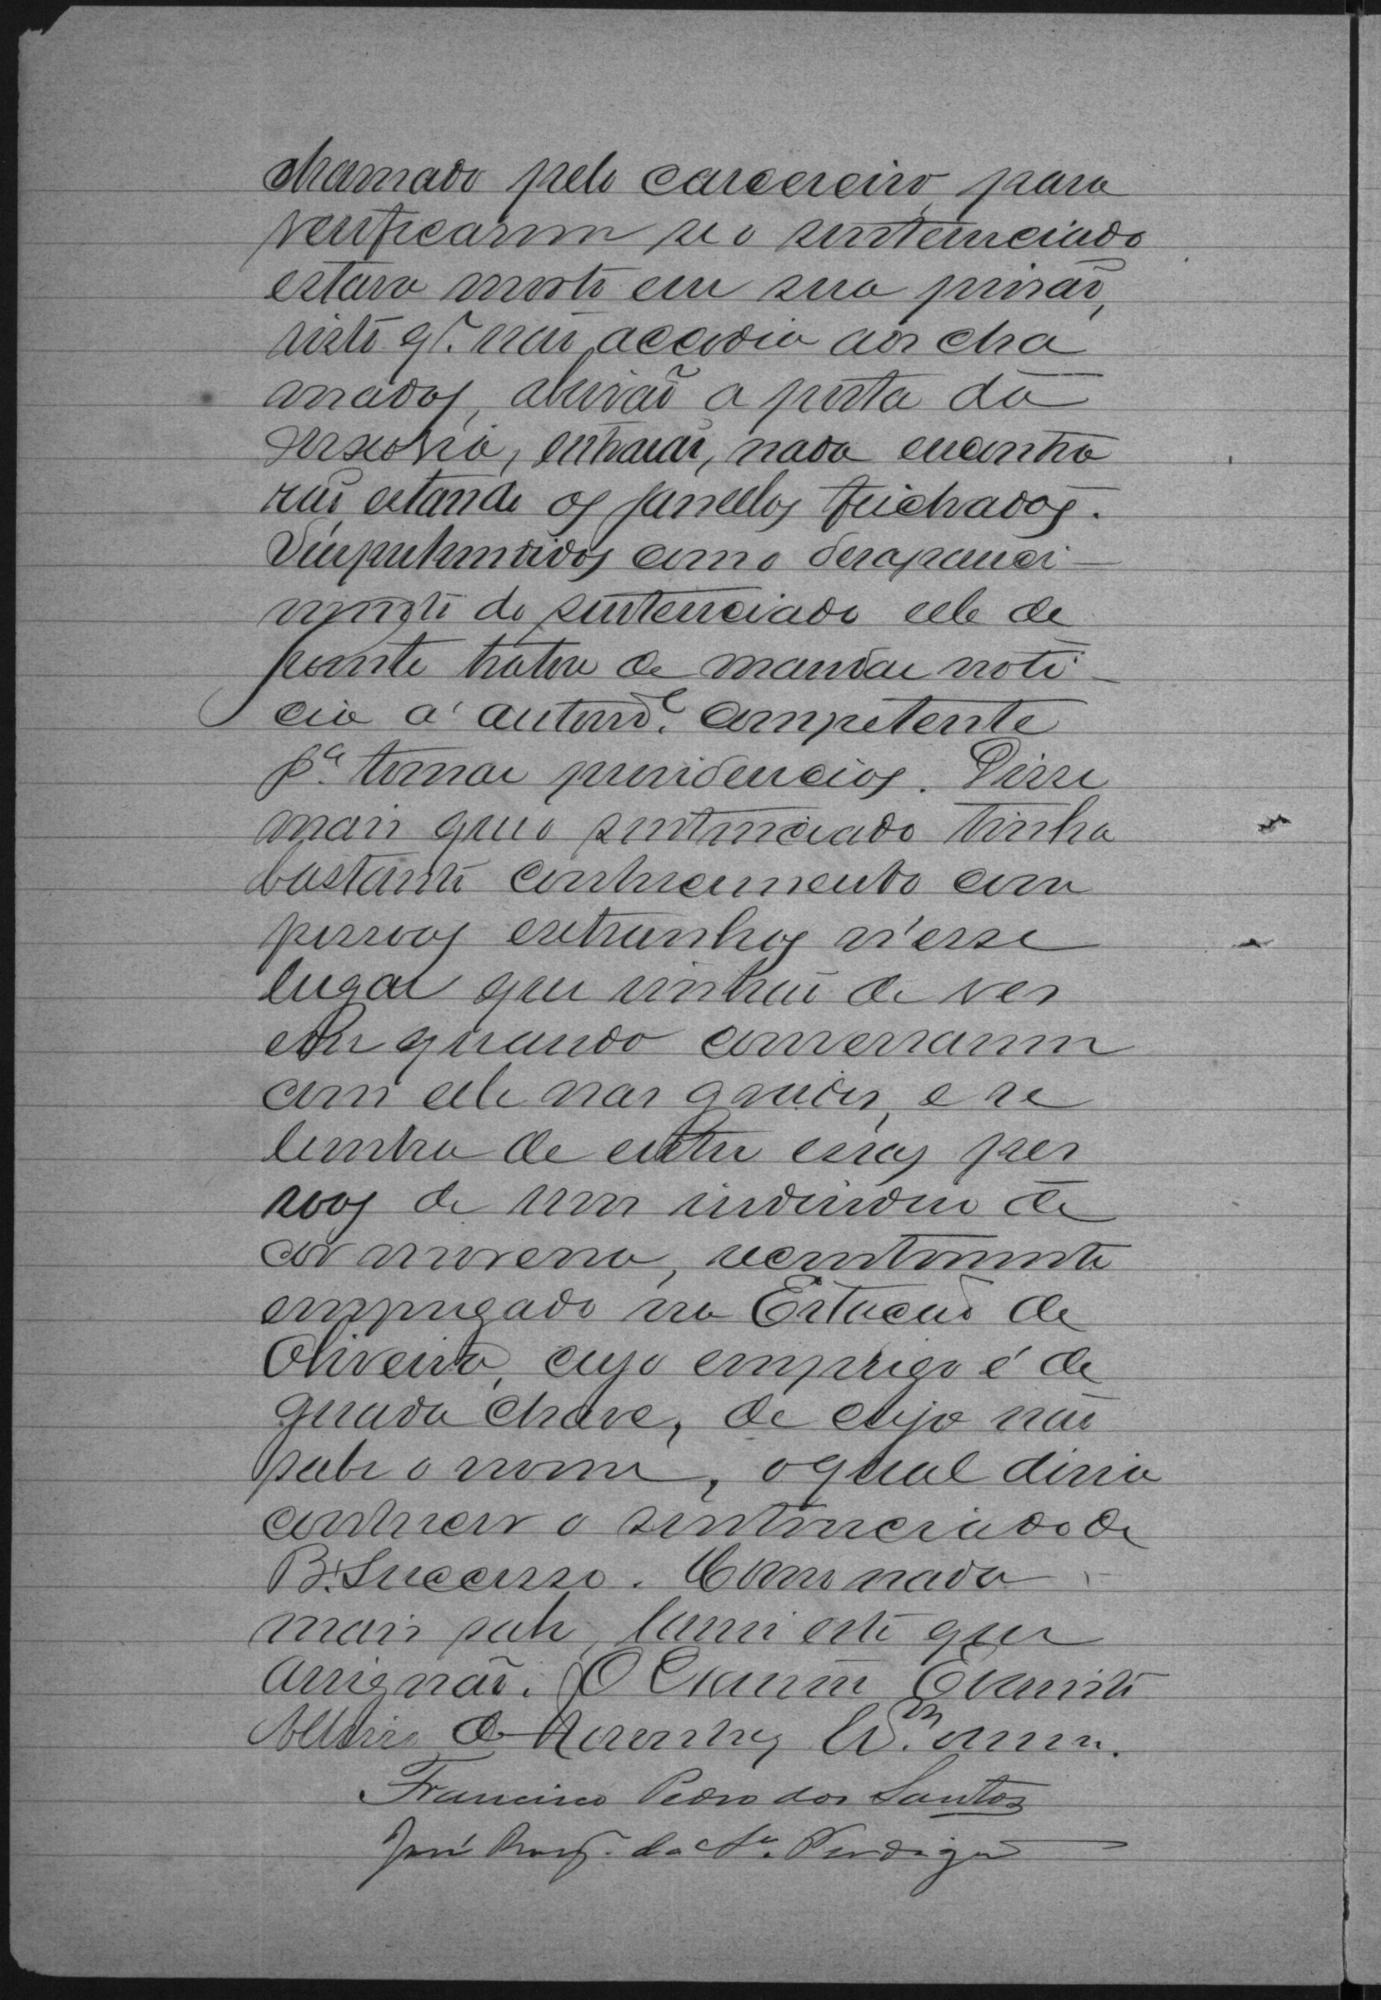 chamado pelo carcereiro, para
verificarem se o sentenciado
estava morto em sua prisão,
visto q.e não accodia aos cha
mados, abrirão a porta da
enxovia, entrarão, nada encontra
rão, estando as janellas feichadas.
Surprehendidos com o desapareci-
mento do sentenciado elle de
poente tratou de mandar noti-
cia á autorid.e competente
p.a tomar providencias. Disse
mais que o sentenciado tinha
bastante conhecimento com
pessoas extranhas n'esse
lugar que vinhão de vez
em quando conversarem
com elle nas grades, e se
lembra de entre essas pes
soas de um individuo de
cor morena, recentemente
empregado na Estação de
Oliveira, cujo emprego é de
guarda chave, de cujo não
sabe o nome, o qual dizia
conhecer o sentenciado de
B. Successo. Como nada
mais sabe, lavrei este que
assignão. O Escrivão Evaristo
de W.m
Francisco Pedro dos Santos
José da Perdigão